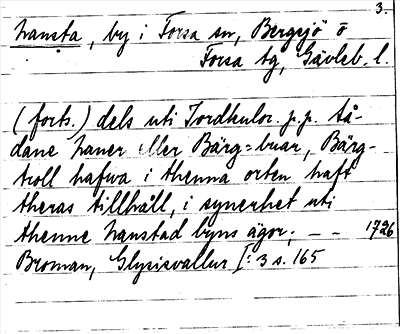 3.
hansta, by i Forsa sn, Bergsjö o
Forsa tg, Gävleb. l.
(forts.) dels uti Jordkulor. p.p. så-
dane haner eller Bärg=buar, Bärg-
troll hafwa i thenna orten haft
theras tillhåll, i synerhet uti
thenne hanstad byns ägor; – – 1726
Broman, Glysisvallur I: 3 s. 165